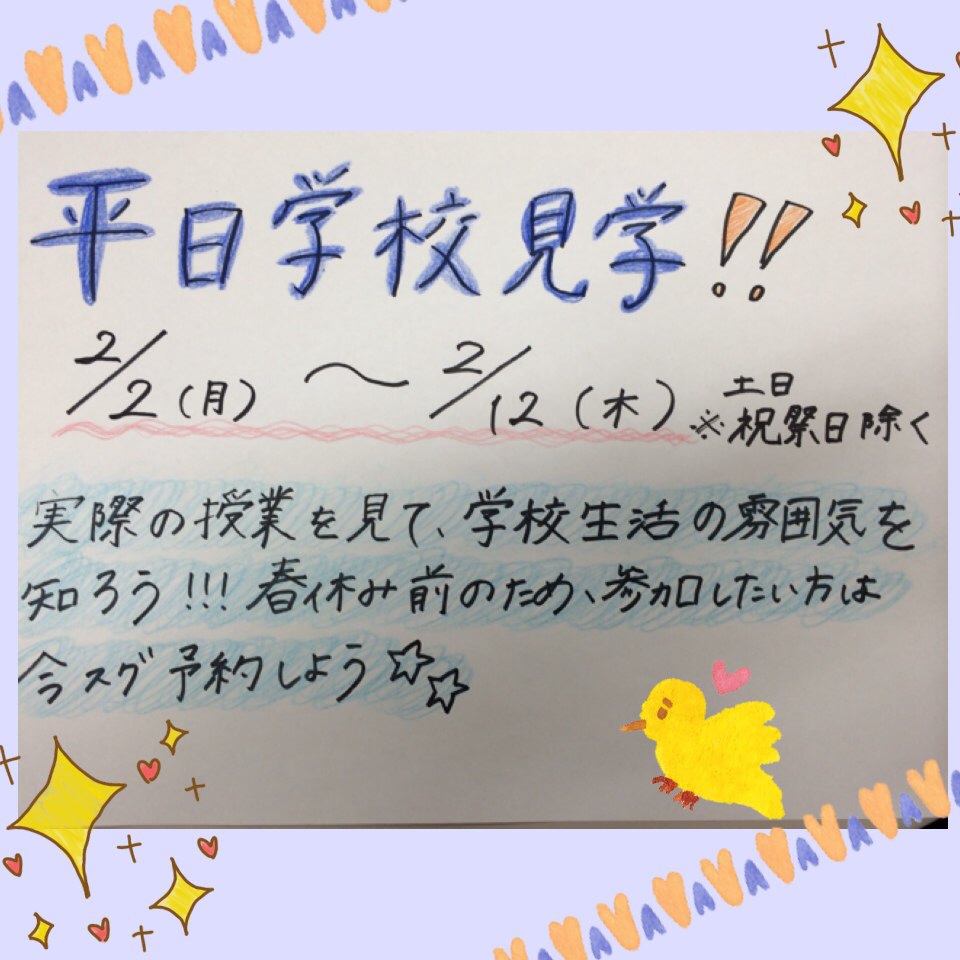 平日学校見学!!
2/2(月)～2/12(木)※土日祝祭日除く
実際の授業を見て、学校生活の雰囲気を
知ろう!!!春休み前のため、参加したい方は
今スグ予約しよう☆☆